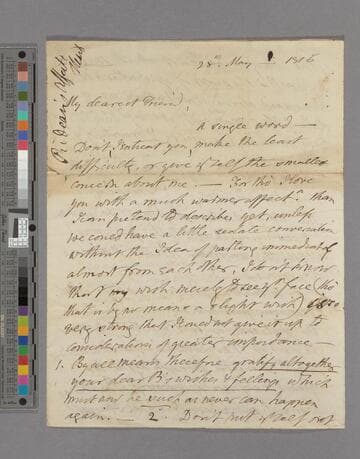 28th May — 1816
My dearest Friend,
A single word —
Don't, I intreat you, make the least
difficulty, or give yrself the smallest
concern about me. — For tho' I love
you with a much warmer affectn than
I can pretend to describe, yet, unless
we could have a little sedate conversation
without the Idea of parting immediately
almost from each other, I do not know
that my wish merely to see yr face (tho'
that is by no means a slight wish) is so
very strong that I cd not give it up to
considerations of greater importance —
1. By all means therefore gratify altogether
your dear B's wishes & feelings which
must now be such as never can happen
again. — 2. Don't put yrself out